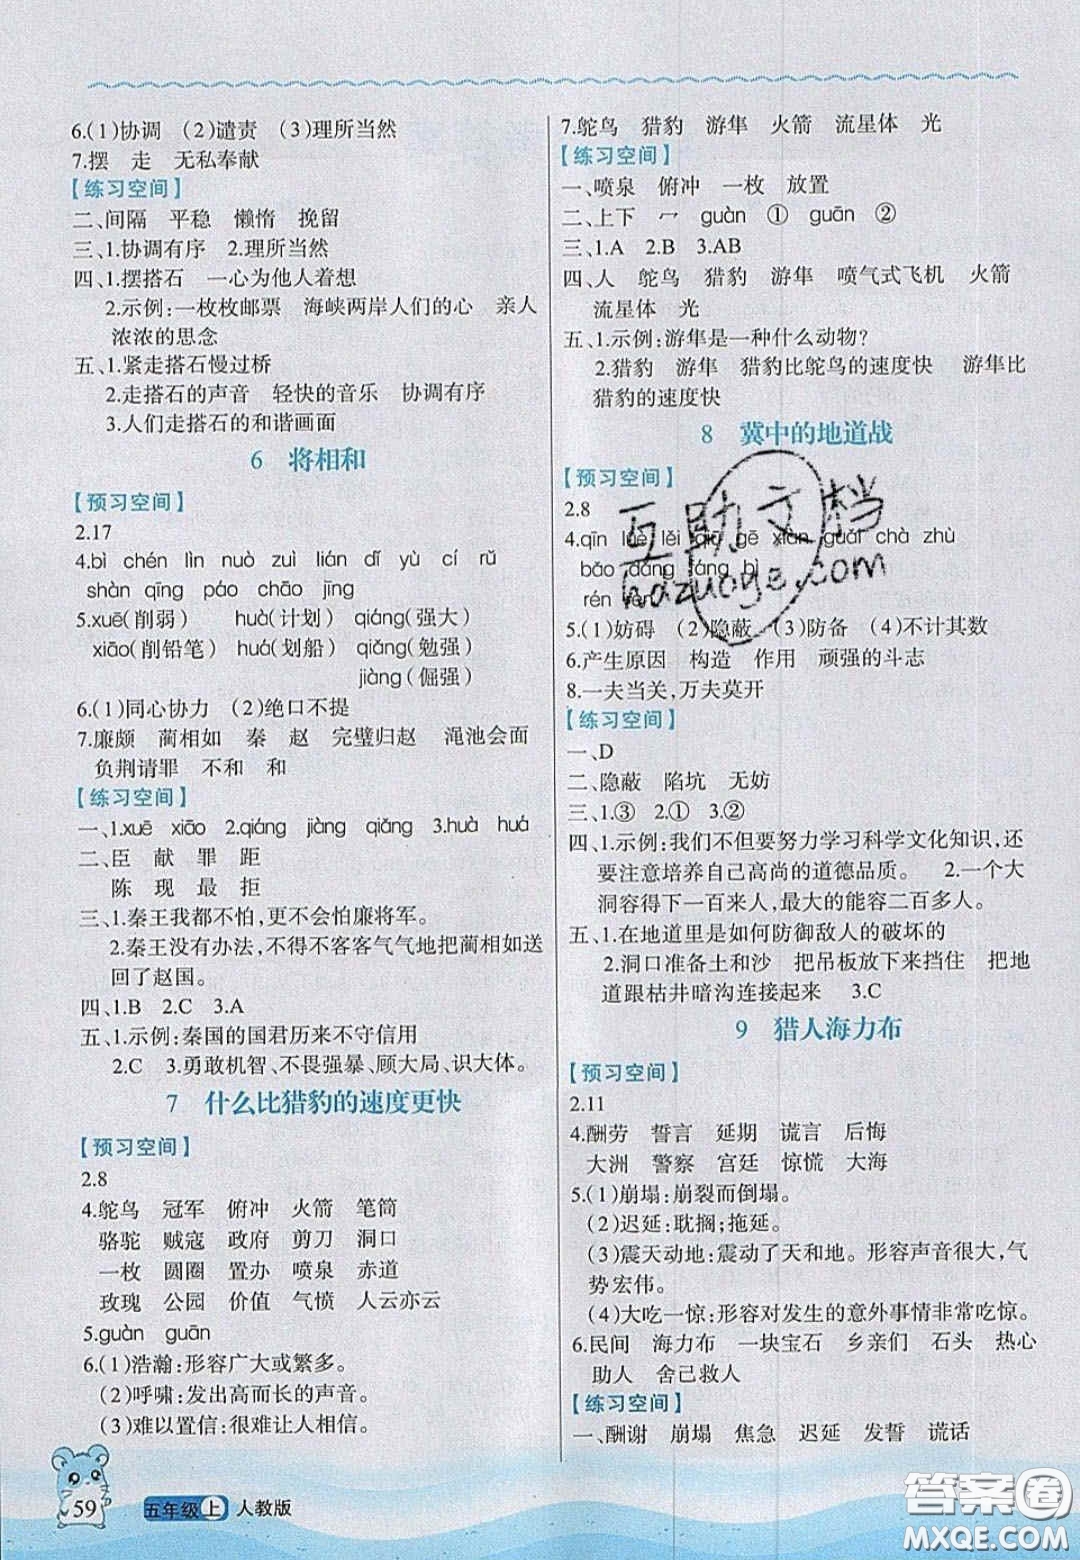 6.(1)协调　(2)谴责　(3)理所当然
7.摆　走　无私奉献
【练习空间】
二、间隔　平稳　懒惰　挽留
三、1.协调有序　2.理所当然
四、1.摆搭石　一心为他人着想
2.示例:一枚枚邮票　海峡两岸人们的心　亲人
浓浓的思念
五、1.紧走搭石慢过桥
2.走搭石的声音　轻快的音乐　协调有序
3.人们走搭石的和谐画面
6　将相和
【预习空间】
2.17
4.bì　chén　lìn　nuò　zuì　lián　dǐ　yù　cí　rǔ
shàn　qīng　páo　chāo　jīng
5.xuē(削弱)　huà(计划)　qiáng(强大)
xiāo(削铅笔)　huá(划船)　qiǎng(勉强)
jiàng(倔强)
6.(1)同心协力　(2)绝口不提
7.廉颇　蔺相如　秦　赵　完璧归赵　渑池会面
负荆请罪　不和　和
【练习空间】
一、1.xuē　xiāo　2.qiáng　jiàng　qiǎng　3.huà　huá
二、臣　献　罪　距
陈　现　最　拒
三、1.秦王我都不怕,更不会怕廉将军。
2.秦王没有办法,不得不客客气气地把蔺相如送
回了赵国。
四、1.B　2.C　3.A
五、1.示例:秦国的国君历来不守信用
2.C　3.勇敢机智、不畏强暴、顾大局、识大体。
7　什么比猎豹的速度更快
【预习空间】
2.8
4.鸵鸟　冠军　俯冲　火箭　笔筒
骆驼　贼寇　政府　剪刀　洞口
一枚　圆圈　置办　喷泉　赤道
玫瑰　公园　价值　气愤　人云亦云
5.guàn　guān
6.(1)浩瀚:形容广大或繁多。
(2)呼啸:发出高而长的声音。
(3)难以置信:很难让人相信。
59　五年级上　人教版
7.鸵鸟　猎豹　游隼　火箭　流星体　光
【练习空间】
一、喷泉　俯冲　一枚　放置
二、上下　冖　guàn　①　guān　②
三、1.A　2.B　3.AB
四、人　鸵鸟　猎豹　游隼　喷气式飞机　火箭
流星体　光
五、1.示例:游隼是一种什么动物?
2.猎豹　游隼　猎豹比鸵鸟的速度快　游隼比
猎豹的速度快
8　冀中的地道战
【预习空间】
2.8
4.qīn　lüè　lěi　qiū　gē　xiàn　guǎi　chà　zhù
bǎo　dǎng　fáng　bì
rén　rèn
5.(1)妨碍　(2)隐蔽　(3)防备　(4)不计其数
6.产生原因　构造　作用　顽强的斗志
8.一夫当关,万夫莫开
【练习空间】
一、D
二、隐蔽　陷坑　无妨
三、1.③　2.①　3.②
四、1.示例:我们不但要努力学习科学文化知识,还
要注意培养自己高尚的道德品质。　2.一个大
洞容得下一百来人,最大的能容二百多人。
五、1.在地道里是如何防御敌人的破坏的
2.洞口准备土和沙　把吊板放下来挡住　把地
道跟枯井暗沟连接起来　3.C
9　猎人海力布
【预习空间】
2.11
4.酬劳　誓言　延期　谎言　后悔
大洲　警察　宫廷　惊慌　大海
5.(1)崩塌:崩裂而倒塌。
(2)迟延:耽搁;拖延。
(3)震天动地:震动了天和地。形容声音很大,气
势宏伟。
(4)大吃一惊:形容对发生的意外事情非常吃惊。
6.民间　海力布　一块宝石　乡亲们　石头　热心
助人　舍己救人
【练习空间】
一、酬谢　崩塌　焦急　迟延　发誓　谎话
互助文档
hazuoge.com
答案圈
MXQE.COM